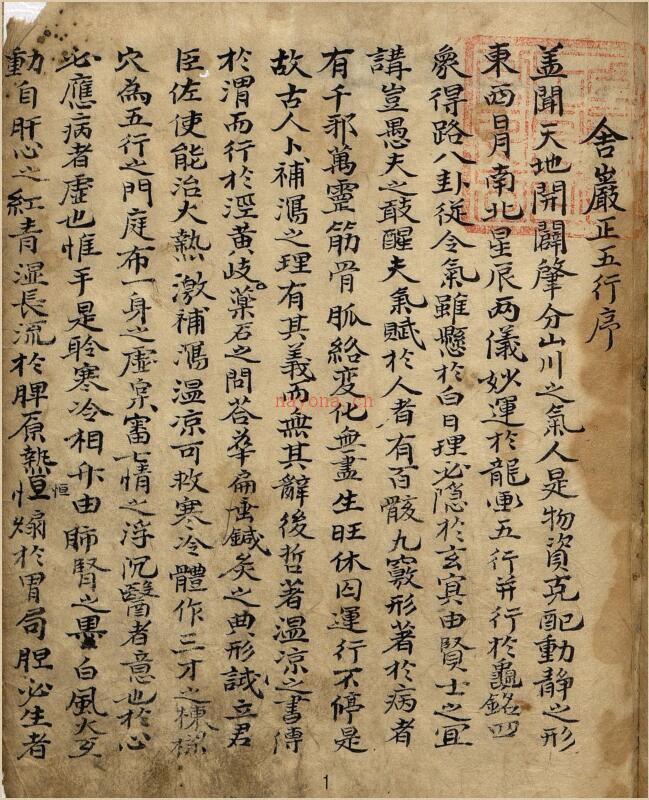 舍巖正五行序
盖聞天地開闢肇分山川之氣人是物資克配動靜之形
東西日月南北星辰两儀妙運於龍圖五行并行於龜銘四
象得路八卦従令氣雖懸於白日理必隱於玄㝠由賢士之冝
講豈愚夫之敢醒夫氣賦於人者有百骸九竅形著於病者
有千邪萬靈筋骨脉絡変化無盡生旺休囚運行不停是
故古人卜補瀉之理有其義而無其辭後哲著温凉之書傳
於渭而行於涇黄歧藥石之問荅華扁鍼灸之典形誠立君
臣佐使能治大熱激補瀉温凉可救寒冷體作三才之棟樑
穴為五行之門庭布一身之虛宲審七情之浮沉醫者意也於心
必應病者虛也惟手是聆寒冷相升由肺腎之黒白風火交
動自肝心之紅青濕長流於脾原熱恒熇於胃局胆必生者
恒
nayona.cn
1